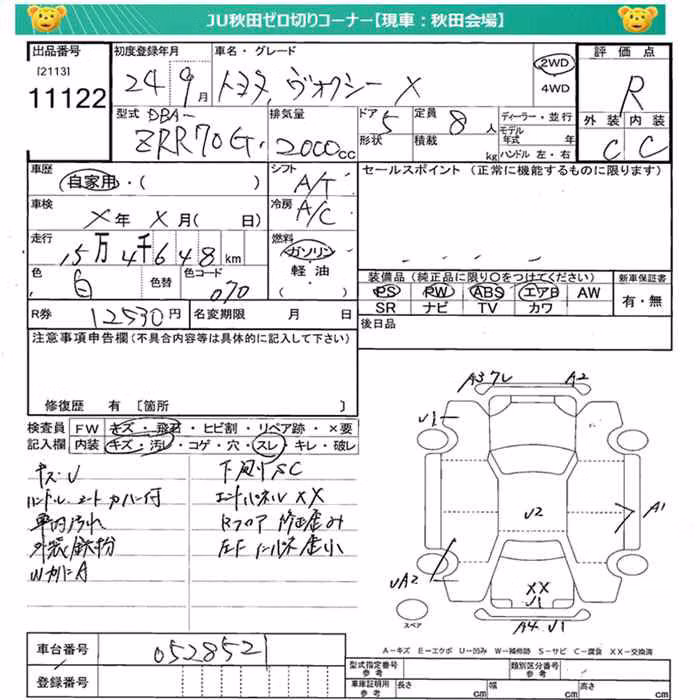 JU秋田ゼロ切りコーナー【現車：秋田会場】
出品番号 初度登録年月 車名・グレード 評価点
[2113] 24 9月 トヨタ ヴォクシー X 2WD R
11122 4WD
型式 DBA- 排気量 ドア 5 定員 8人 ディーラー・並行 外装 内装
ZRR70G 2000cc 形状 積載 kg モデル年式 年 C C
ハンドル 左・右
車歴 シフト セールスポイント（正常に機能するものに限ります）
自家用・( ) A/T
車検 冷房
X年 X月( 日) A/C
走行 燃料
15万4千648km ガソリン
色 色替 色コード 軽油 装備品（純正品に限り○をつけてください） 新車保証書
白 070 ・( ) PS PW ABS エアB AW 有・無
SR ナビ TV カワ
R券 12530円 名変期限 月 日 後日品
注意事項申告欄（不具合内容等は具体的に記入して下さい）
修復歴 有 [箇所 ]
A3 A2
検査員 FW キズ・飛石・ヒビ割・リペア跡・×要
記入欄 内装 キズ・汚レ・コゲ・穴・スレ・キレ・破レ
U1
キズU 下廻りSC
エンドパネルXX
車内汚れ Rフロア
外装鉄粉
U2 A1
UA2
XX
U1
スペア A4 U1
A－キズ E－エクボ U－凹み W－補修跡 S－サビ C－腐食 XX－交換済
車台番号 0528521
登録番号
型式指定番号 参考 類別区分番号 参考
車庫証明用 参考 長さ cm 幅 cm 高さ cm